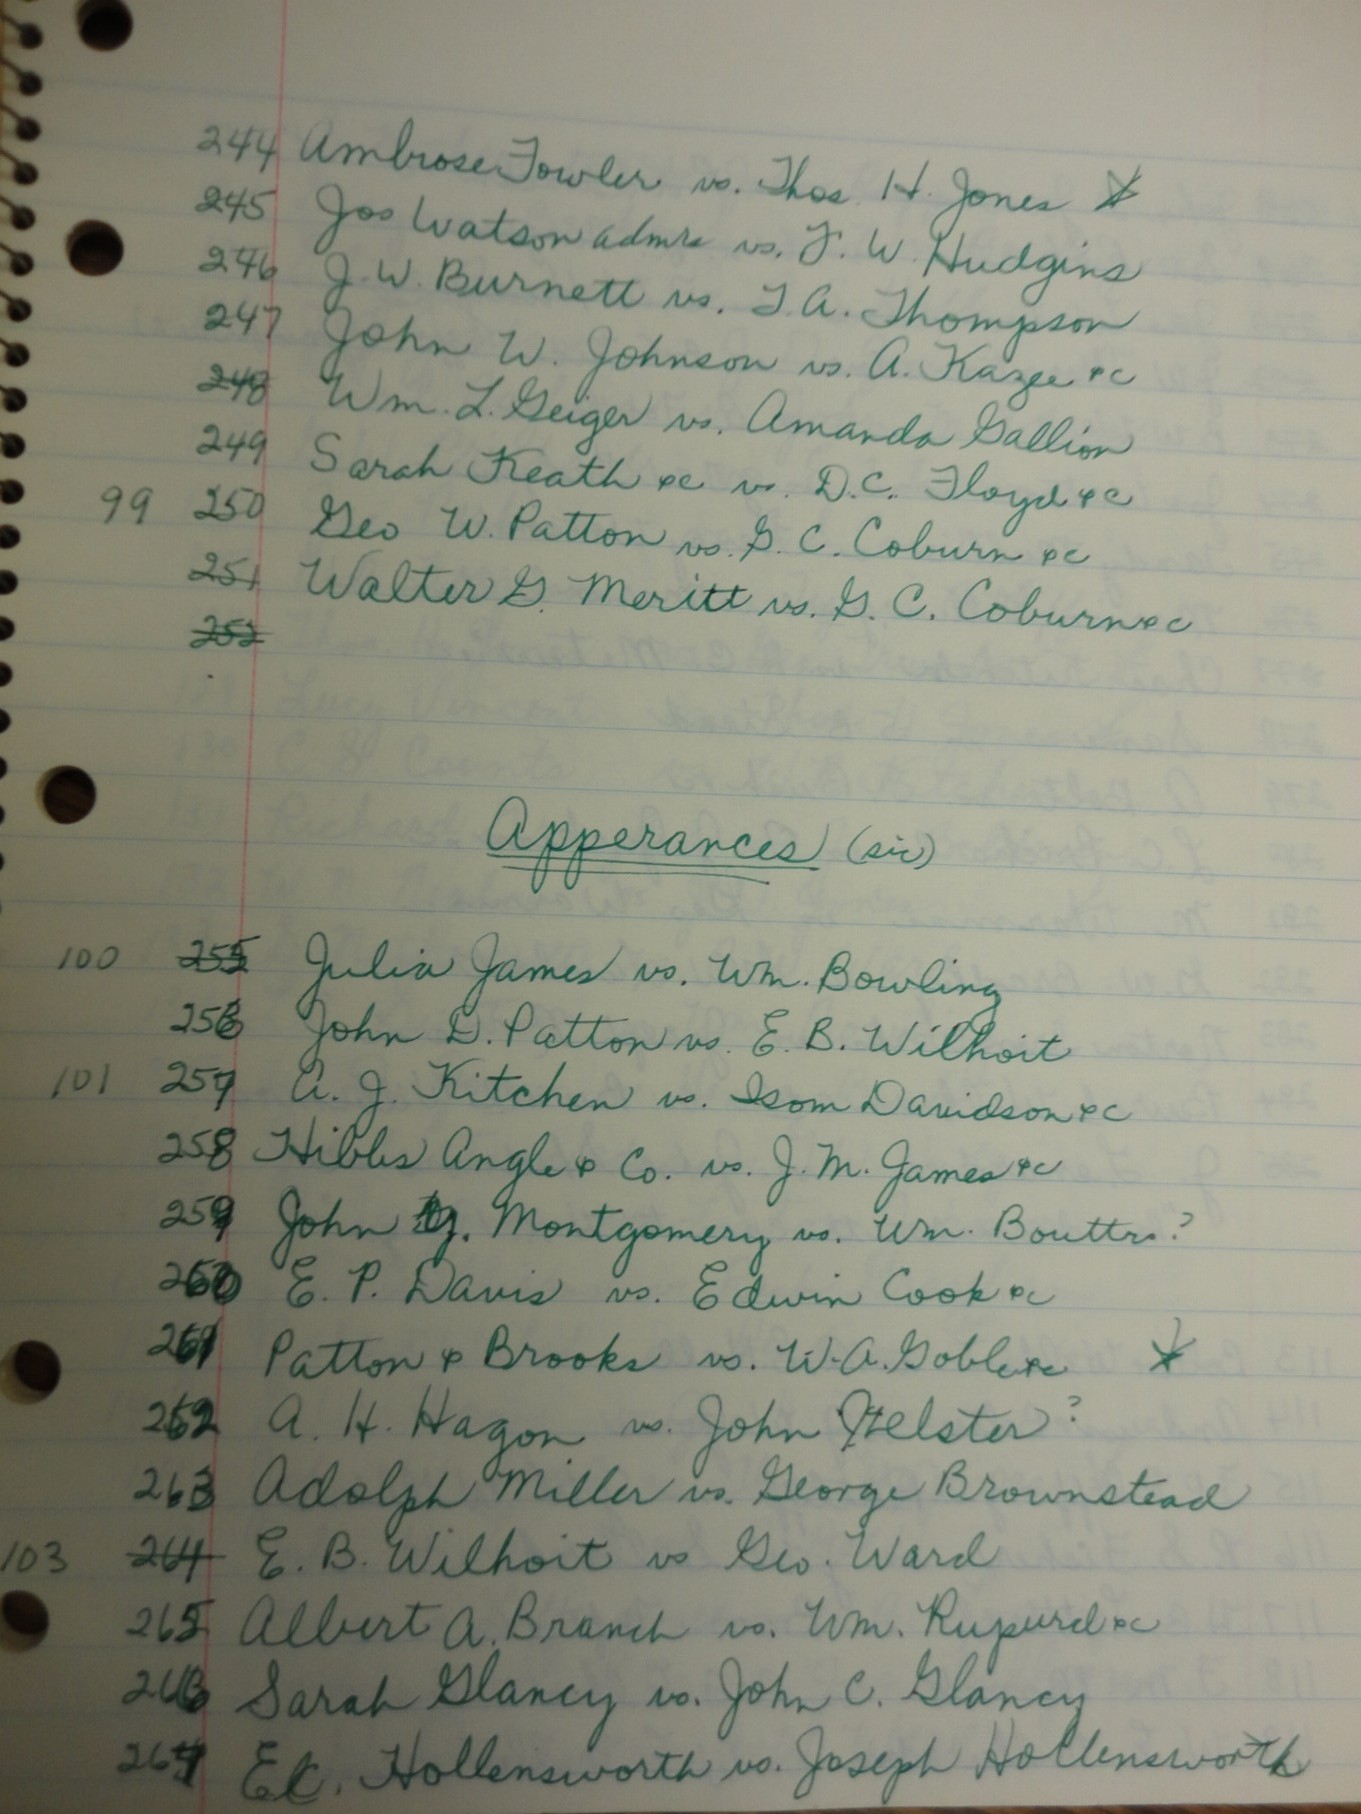 244 Ambrose Fowler vs. Thos. H. Jones
245 Jos Watson admrs vs. F. W. Hudgins
246 J. W. Burnett vs. T. A. Thompson
247 John W. Johnson vs. A. Kazee &c
248 Wm. L. Geiger vs. Amanda Gallion
249 Sarah Keath &c vs. D. C. Floyd &c
99 250 Geo W. Patton vs. G. C. Coburn &c
251 Walter G. Meritt vs. G. C. Coburn &c
252
Apperances (sic)
100 255 Julia James vs. Wm. Bowling
256 John D. Patton vs. E. B. Wilhoit
101 257 A. J. Kitchen vs. Isom Davidson &c
258 Hibbs Angle & Co. vs. J. M. James &c
259 John Montgomery vs. Wm. Bouttrs?
260 E. P. Davis vs. Edwin Cook &c
261 Patton & Brooks vs. W. A. Goble &c
262 A. H. Hagon vs. John Helster?
263 Adolph Miller vs. George Brownstead
103 264 E. B. Wilhoit vs Geo. Ward
265 Albert A. Branch vs. Wm. Rupurd &c
266 Sarah Glancy vs. John C. Glancy
267 E. Hollensworth vs. Joseph Hollensworth